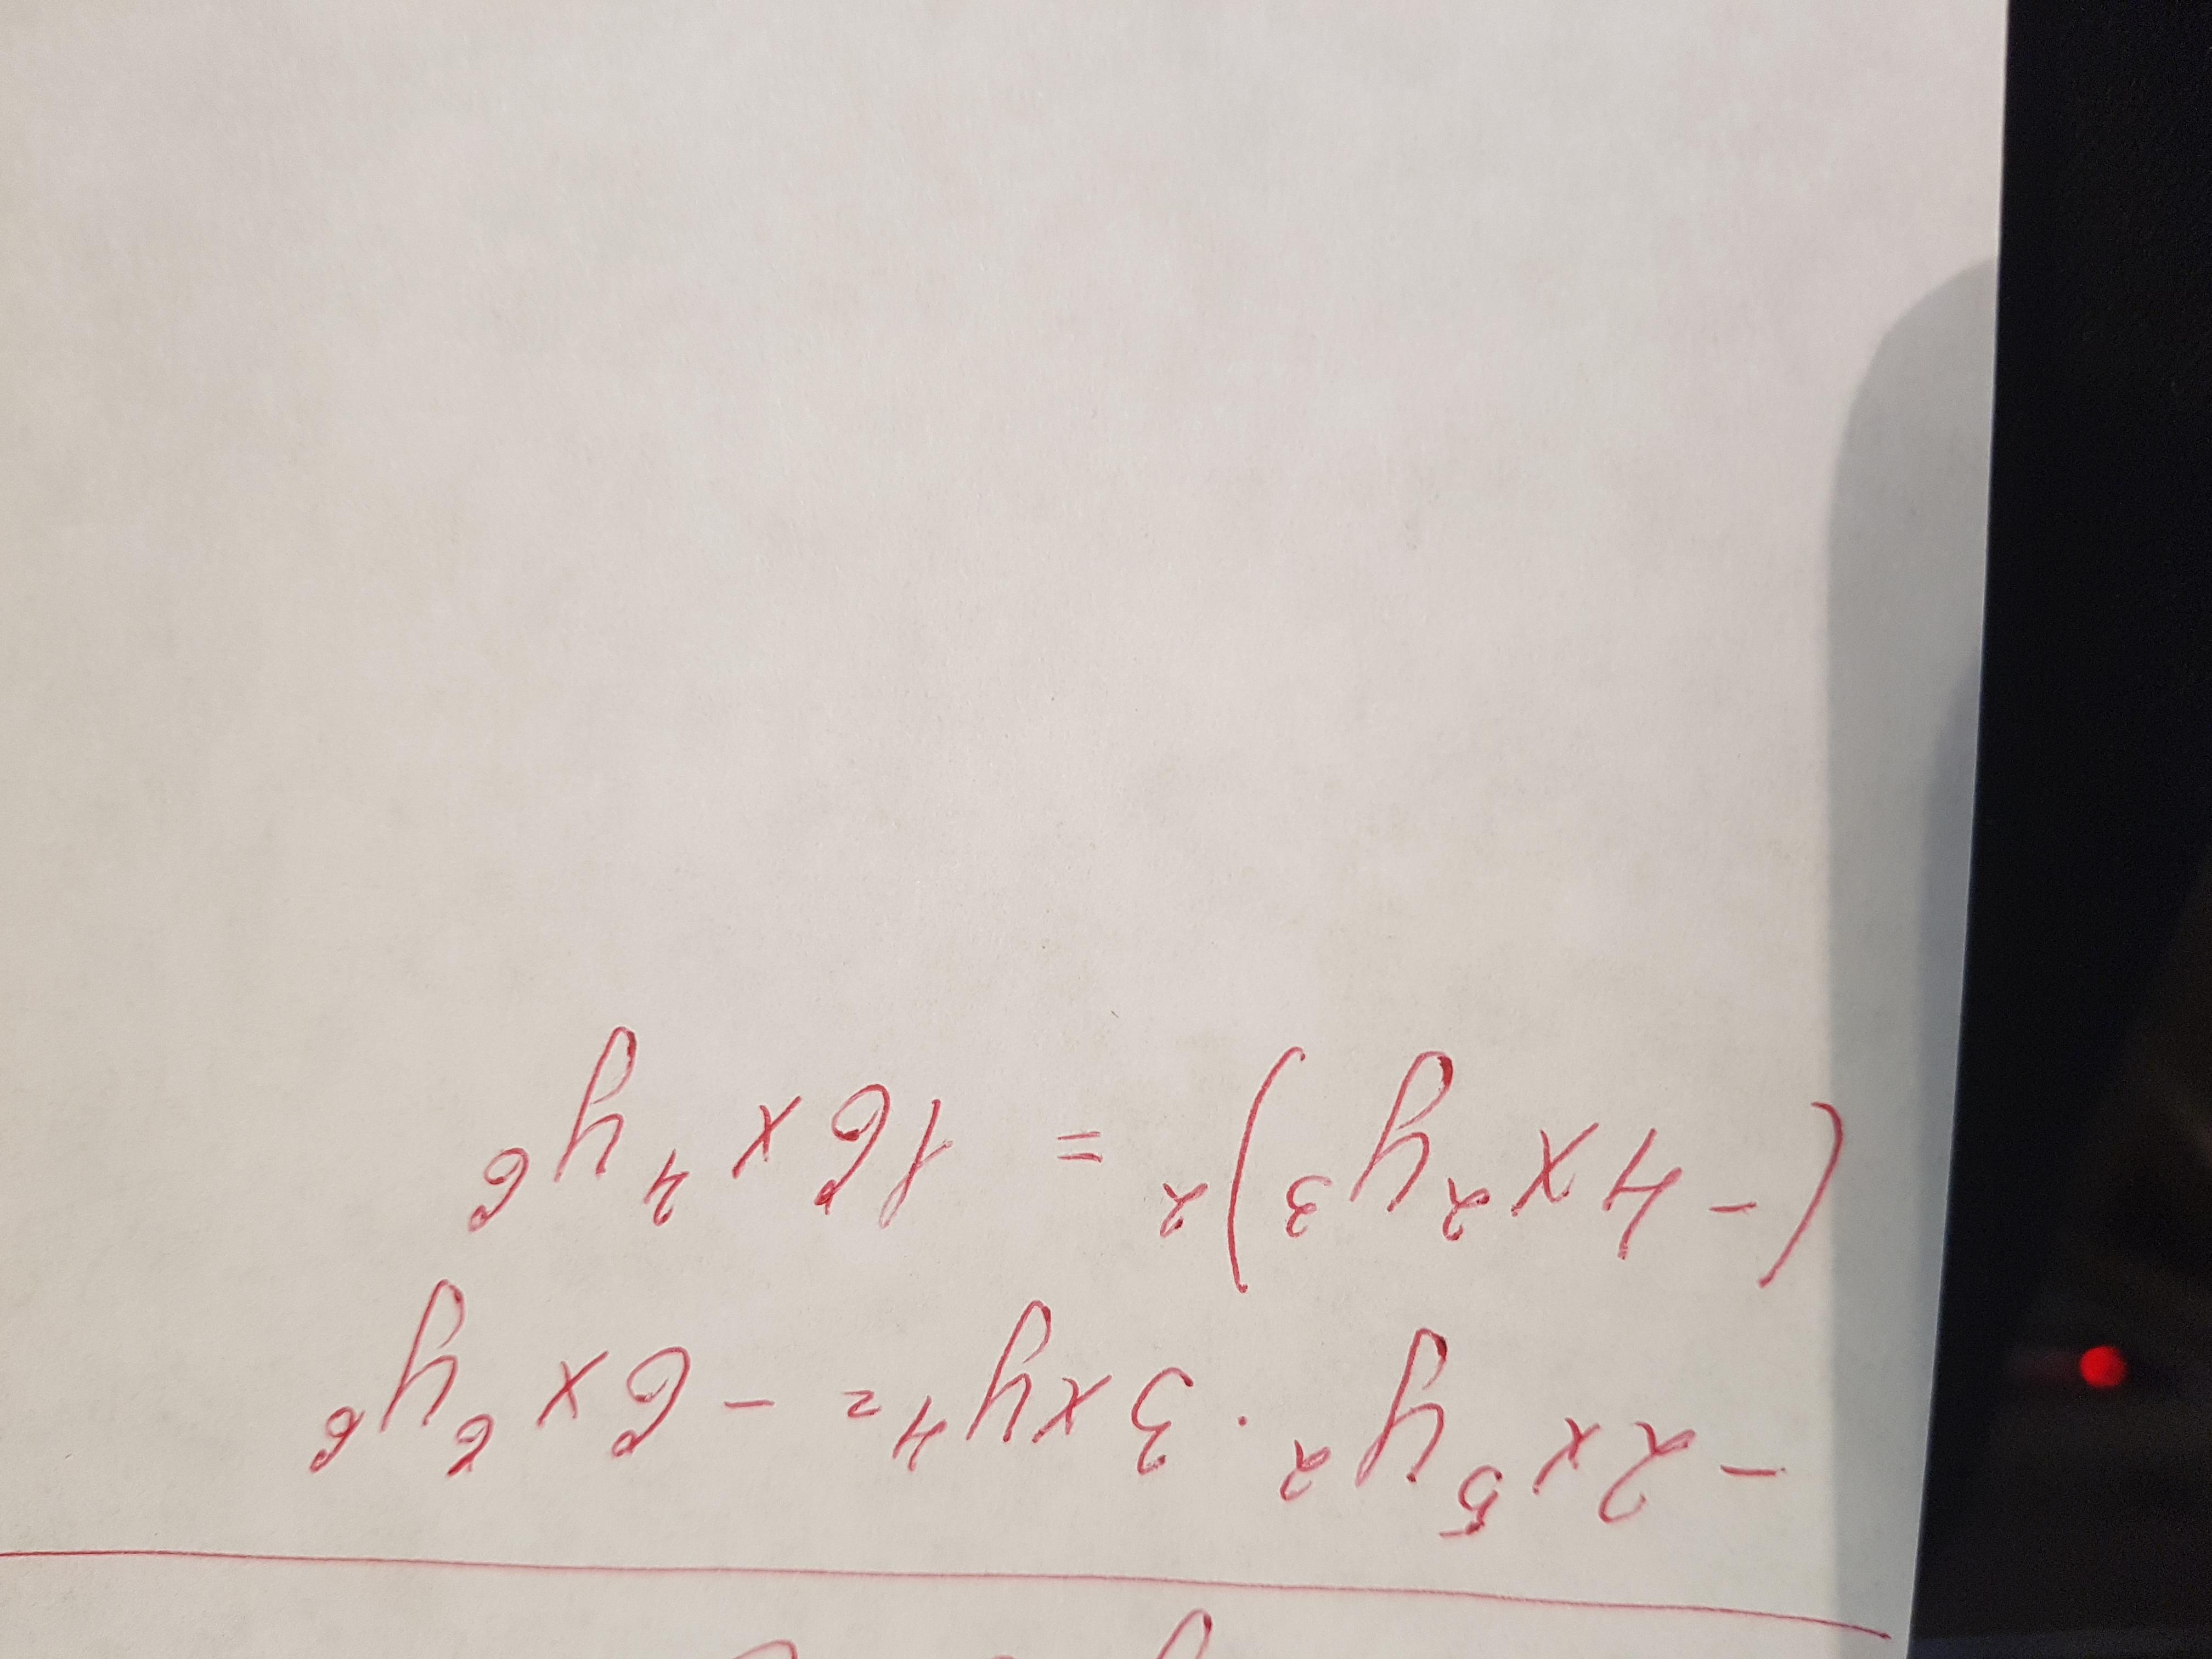 -2x⁵y² · 3xy⁴ = -6x⁶y⁶
(-4x²y³)² = 16x⁴y⁶